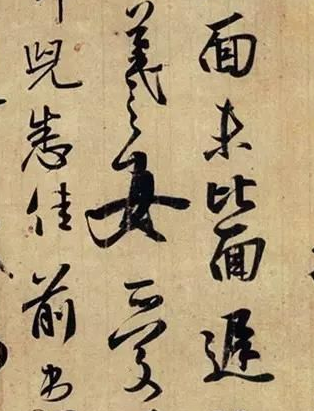 面未比面遲
羲之女愛
兒悉佳前